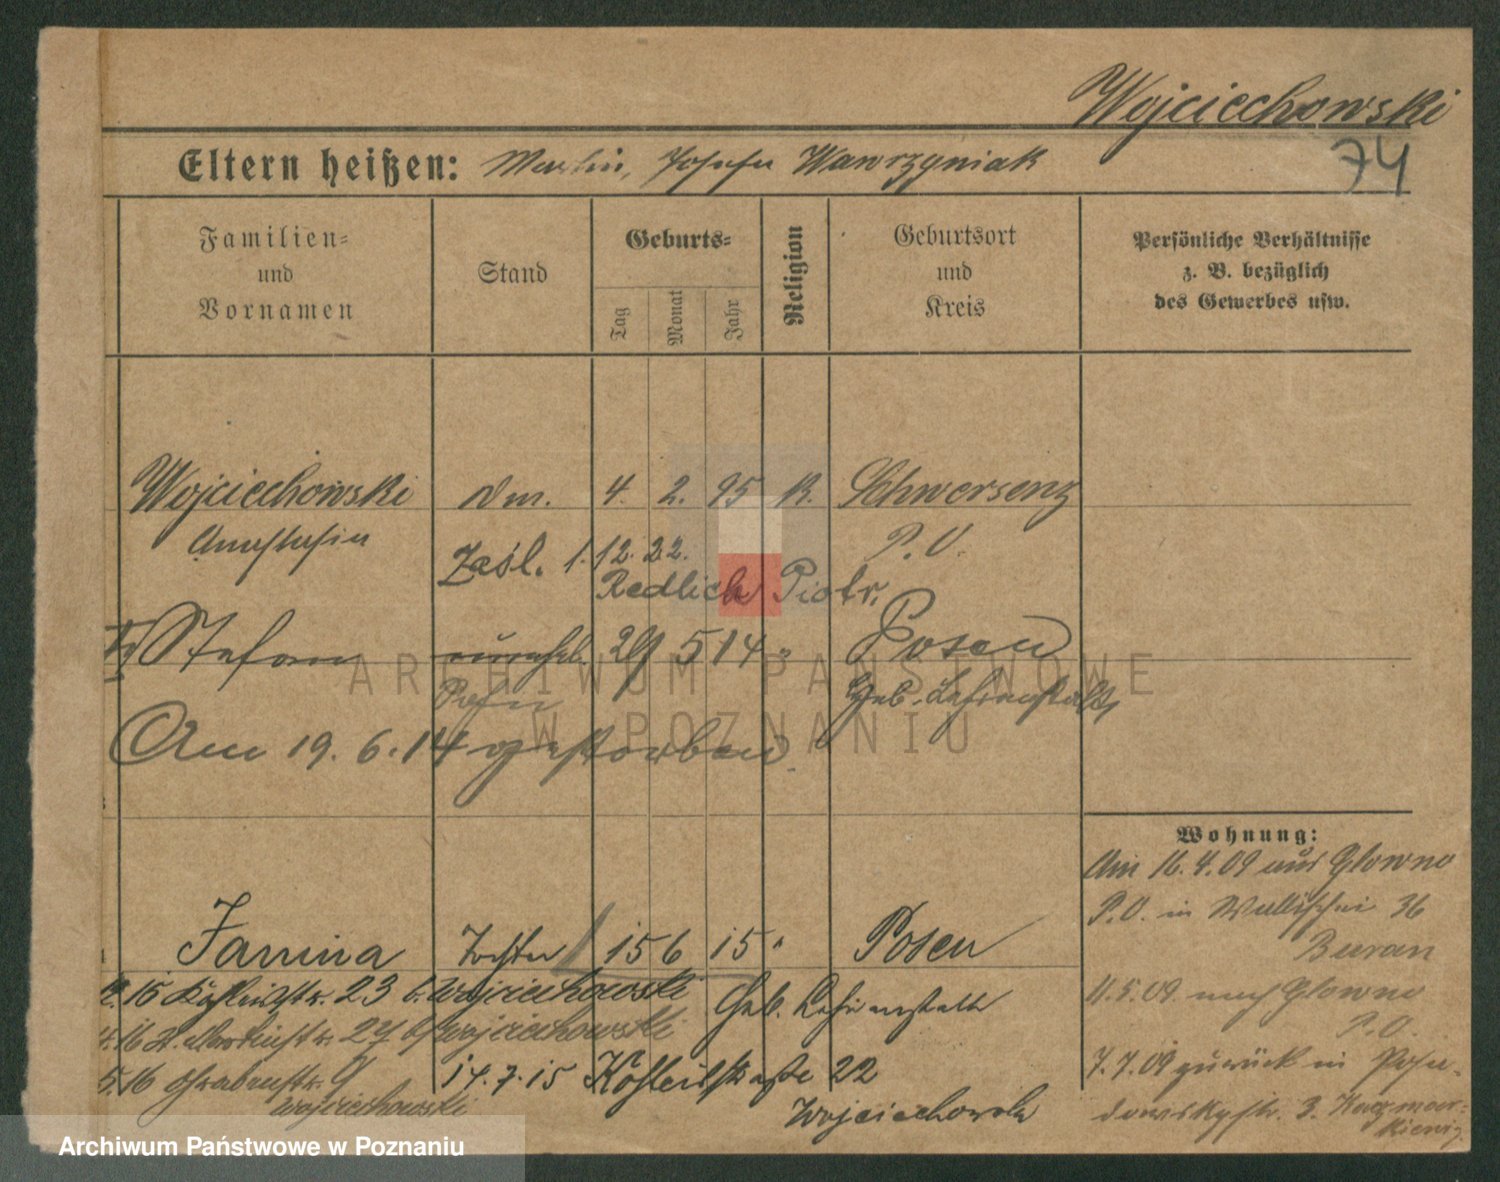 Wojciechowski
74
Eltern heißen: Martin, Josefa Wawrzyniak
Familien=
und
Vornamen
Stand
Geburts=
Tag
Monat
Jahr
Religion
Geburtsort
und
Kreis
Persönliche Verhältnisse
z. B. bezüglich
des Gewerbes usw.
Wojciechowski
Anastasia
4. 2. 95 k. Schwersenz
P. O.
Zaśl. 1.12.22.
Redlich Piotr.
Stefan
unehel. 29 5 14 " Posen
Sohn
Geb. Lehranstalt
Am 19. 6. 14 gestorben
Janina Tochter 15 6 15 " Posen
Geb. Lehranstalt
15 23 b. Wojciechowski
16 St. Martinstr. 27 b. Wojciechowski
16 Grabenstr. 9
Wojciechowski
14. 7. 15 22
Wojciechowski
Wohnung:
Am 16. 4. 09 aus Glowno
P. O. in Wallischei 36
11. 5. 09. nach Glowno
P. O.
7. 7. 09 zurück in
3. Kaczmar=
kiewicz
ARCHIWUM PAŃSTWOWE
W POZNANIU
Archiwum Państwowe w Poznaniu